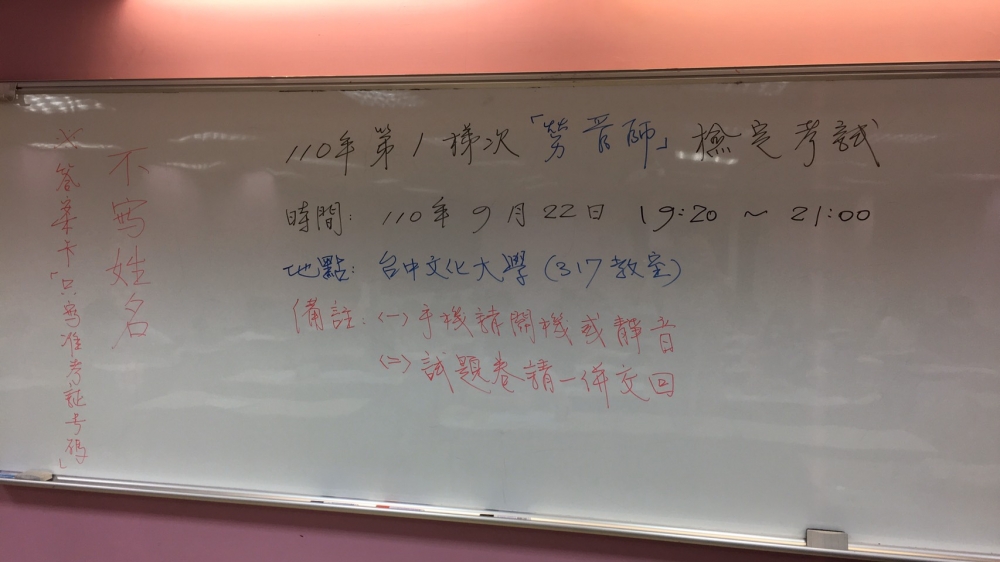 110年第1梯次「勞晉師」檢定考試
時間: 110年9月22日 19:20 ~ 21:00
地點: 台中文化大學(317教室)
備註: (一)手機請關機或靜音
(二)試題卷請一併交回
不寫姓名
※答案卡「只寫准考証号码」